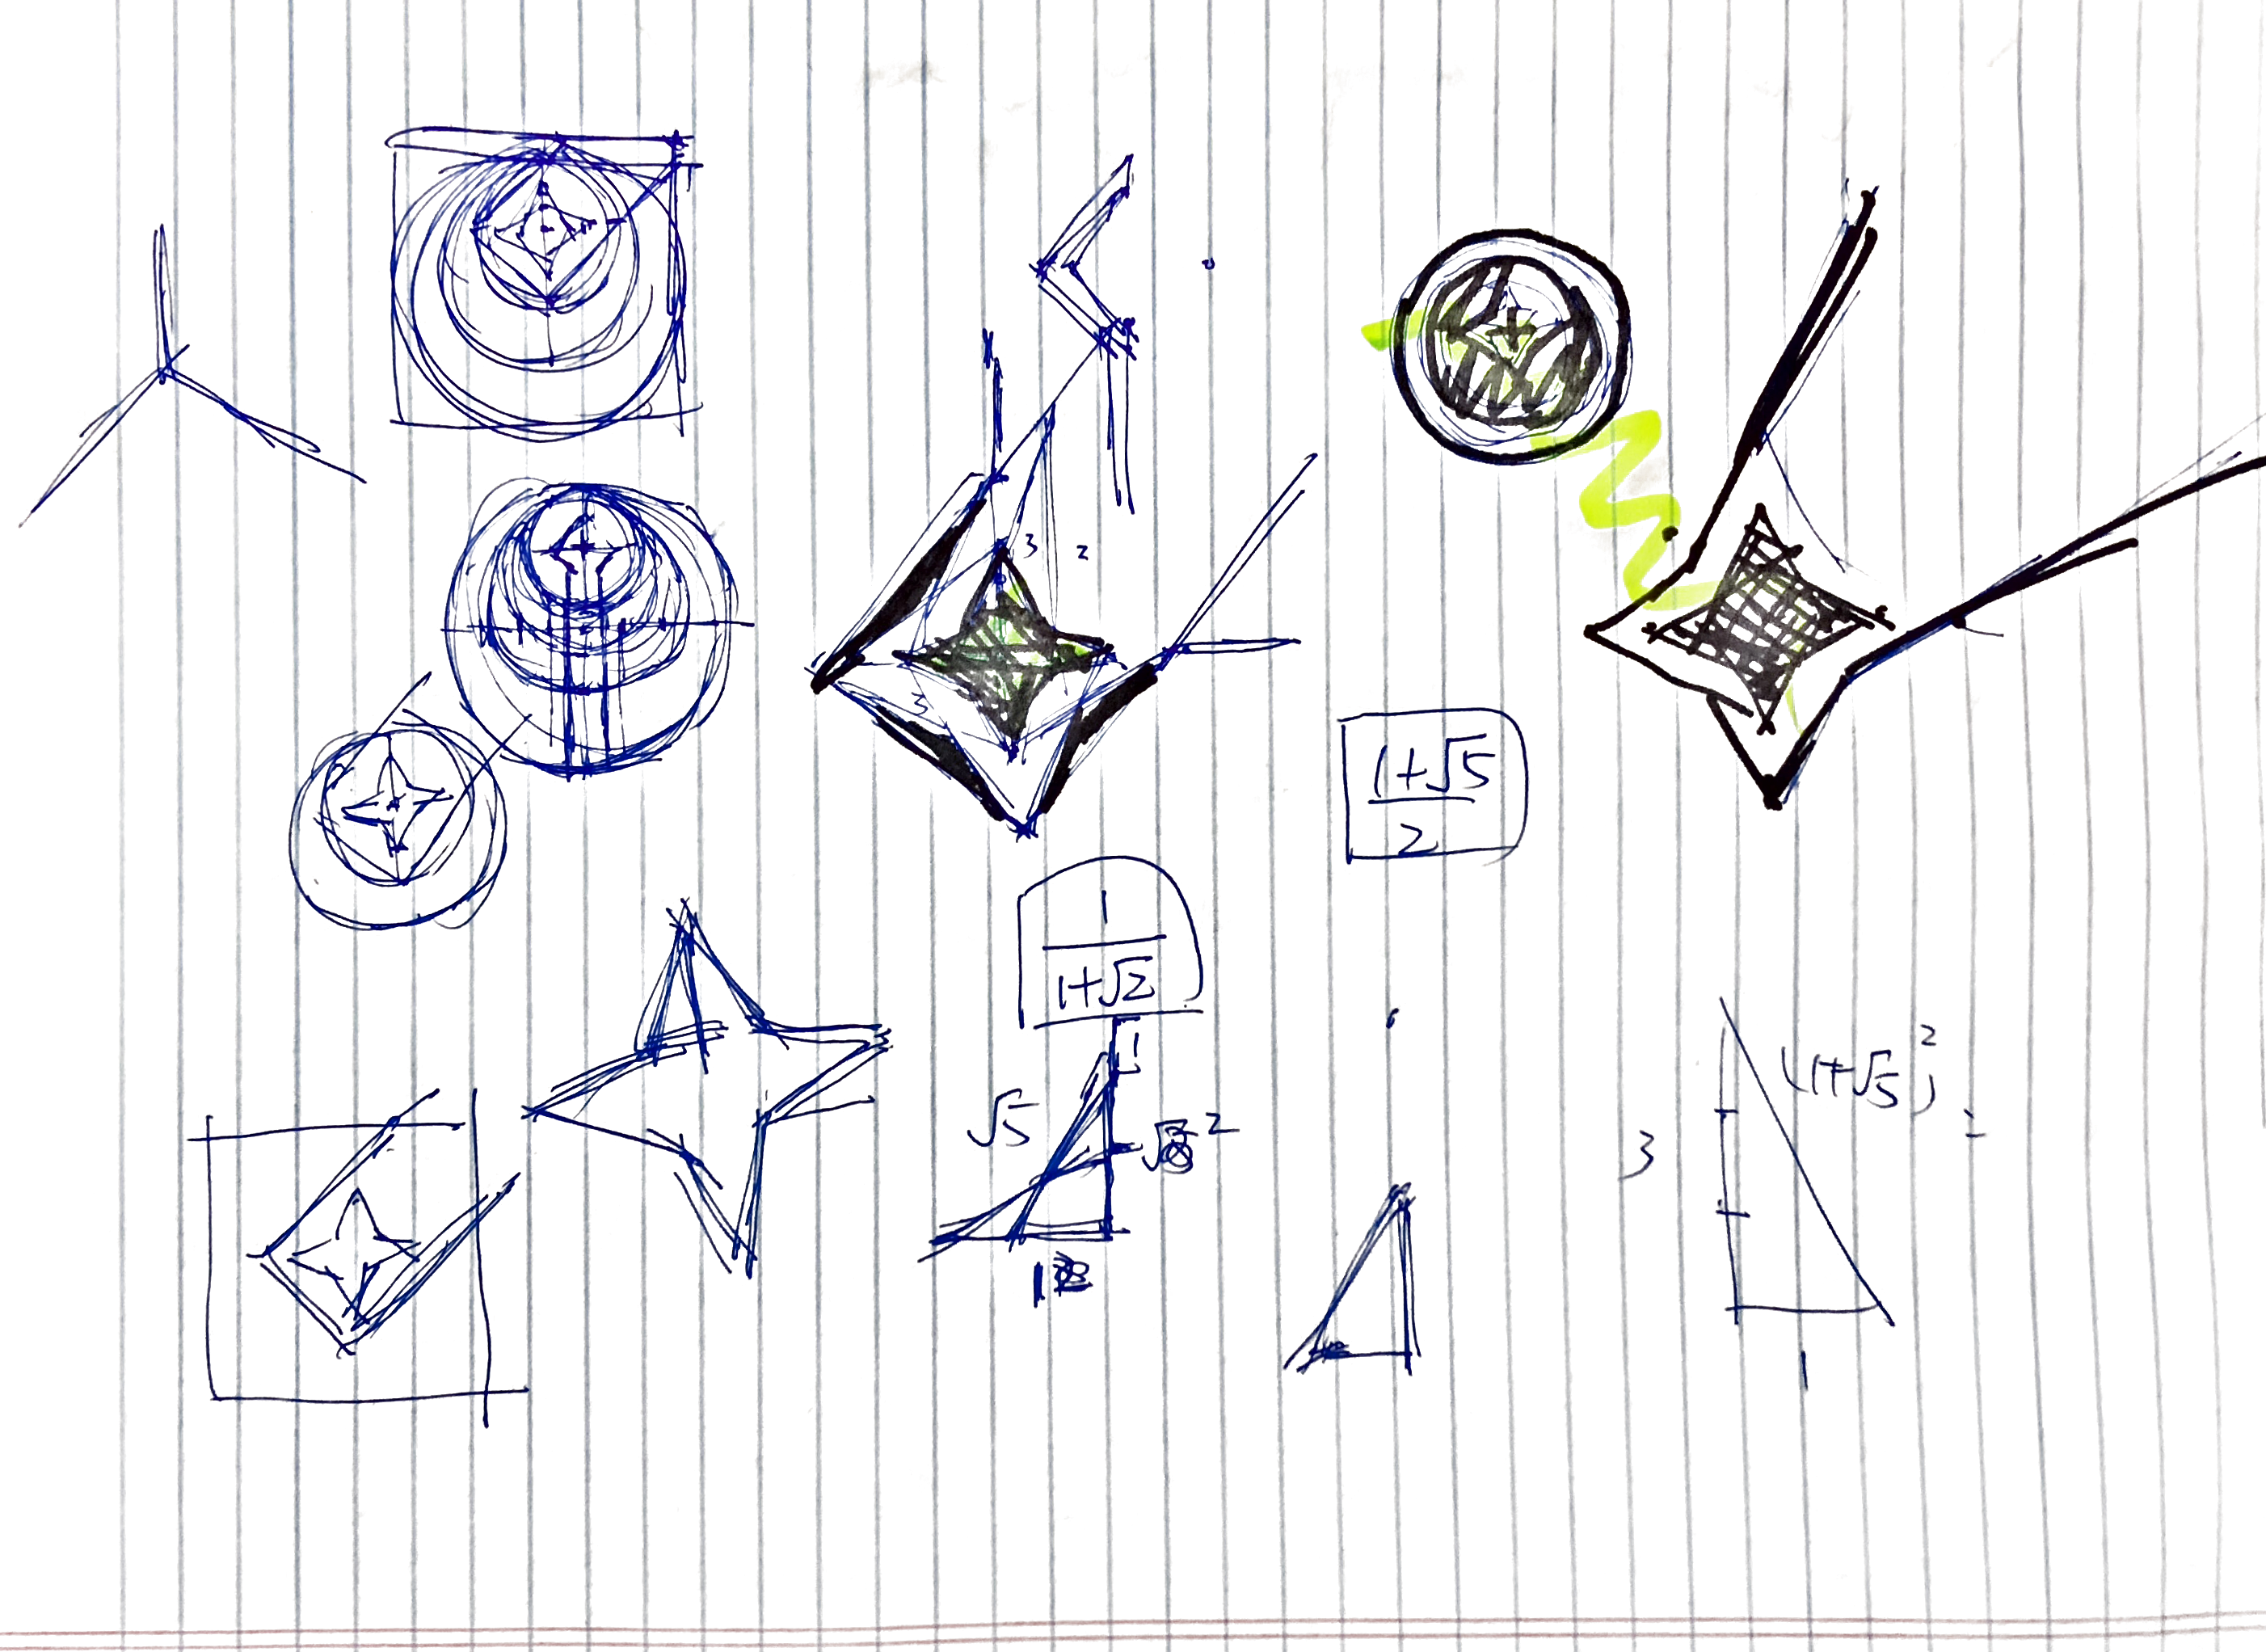 3 2
3
1+√5
2
1
1+√2
1
√5
2
1
(1+√5)²
=
3
1